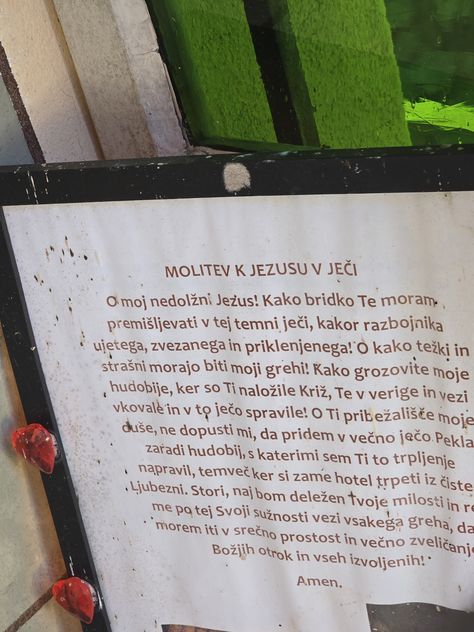 MOLITEV K JEZUSU V JEČI
O moj nedolžni Jezus! Kako bridko Te moram
premišljevati v tej temni ječi, kakor razbojnika
ujetega, zvezanega in priklenjenega! O kako težki in
strašni morajo biti moji grehi! Kako grozovite moje
hudobije, ker so Ti naložile Križ, Te v verige in vezi
vkovale in v to ječo spravile! O Ti pribežališče moje
duše, ne dopusti mi, da pridem v večno ječo Pekla
zaradi hudobij, s katerimi sem Ti to trpljenje
napravil, temveč ker si zame hotel trpeti iz čiste
Ljubezni. Stori, naj bom deležen Tvoje milosti in
me po tej Svoji sužnosti vezi vsakega greha, da
morem iti v srečno prostost in večno zveličanje
Božjih otrok in vseh izvoljenih!
Amen.